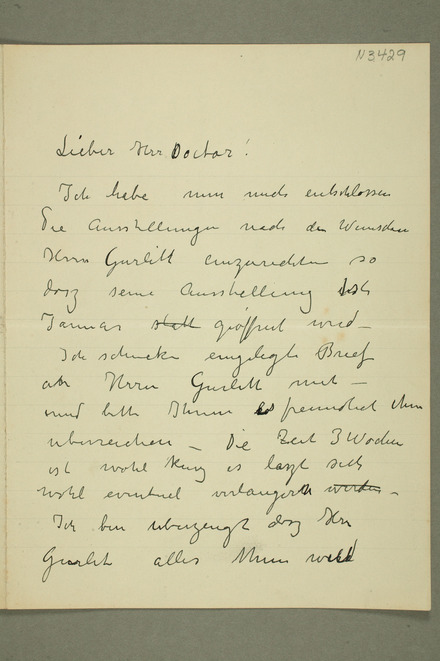 N3429
Lieber Herr Doctor!
Ich habe nun mich entschlossen
die Ausstellungen nach den Wunschen
Herrn Gurlitt einzurichten so
dasz seine Ausstellung
Januar statt geöffnet wird –
Ich schicke eingelegte Brief
an Herrn Gurlitt mit –
und bitte Ihnen es freundlich ihm
uberreichen – Die Zeit 3 Wochen
ist wohl kurz es laszt sich
wohl eventuel verlangern werden –
Ich bin uberzeugt dasz Herr
Gurlitt alles thun wird